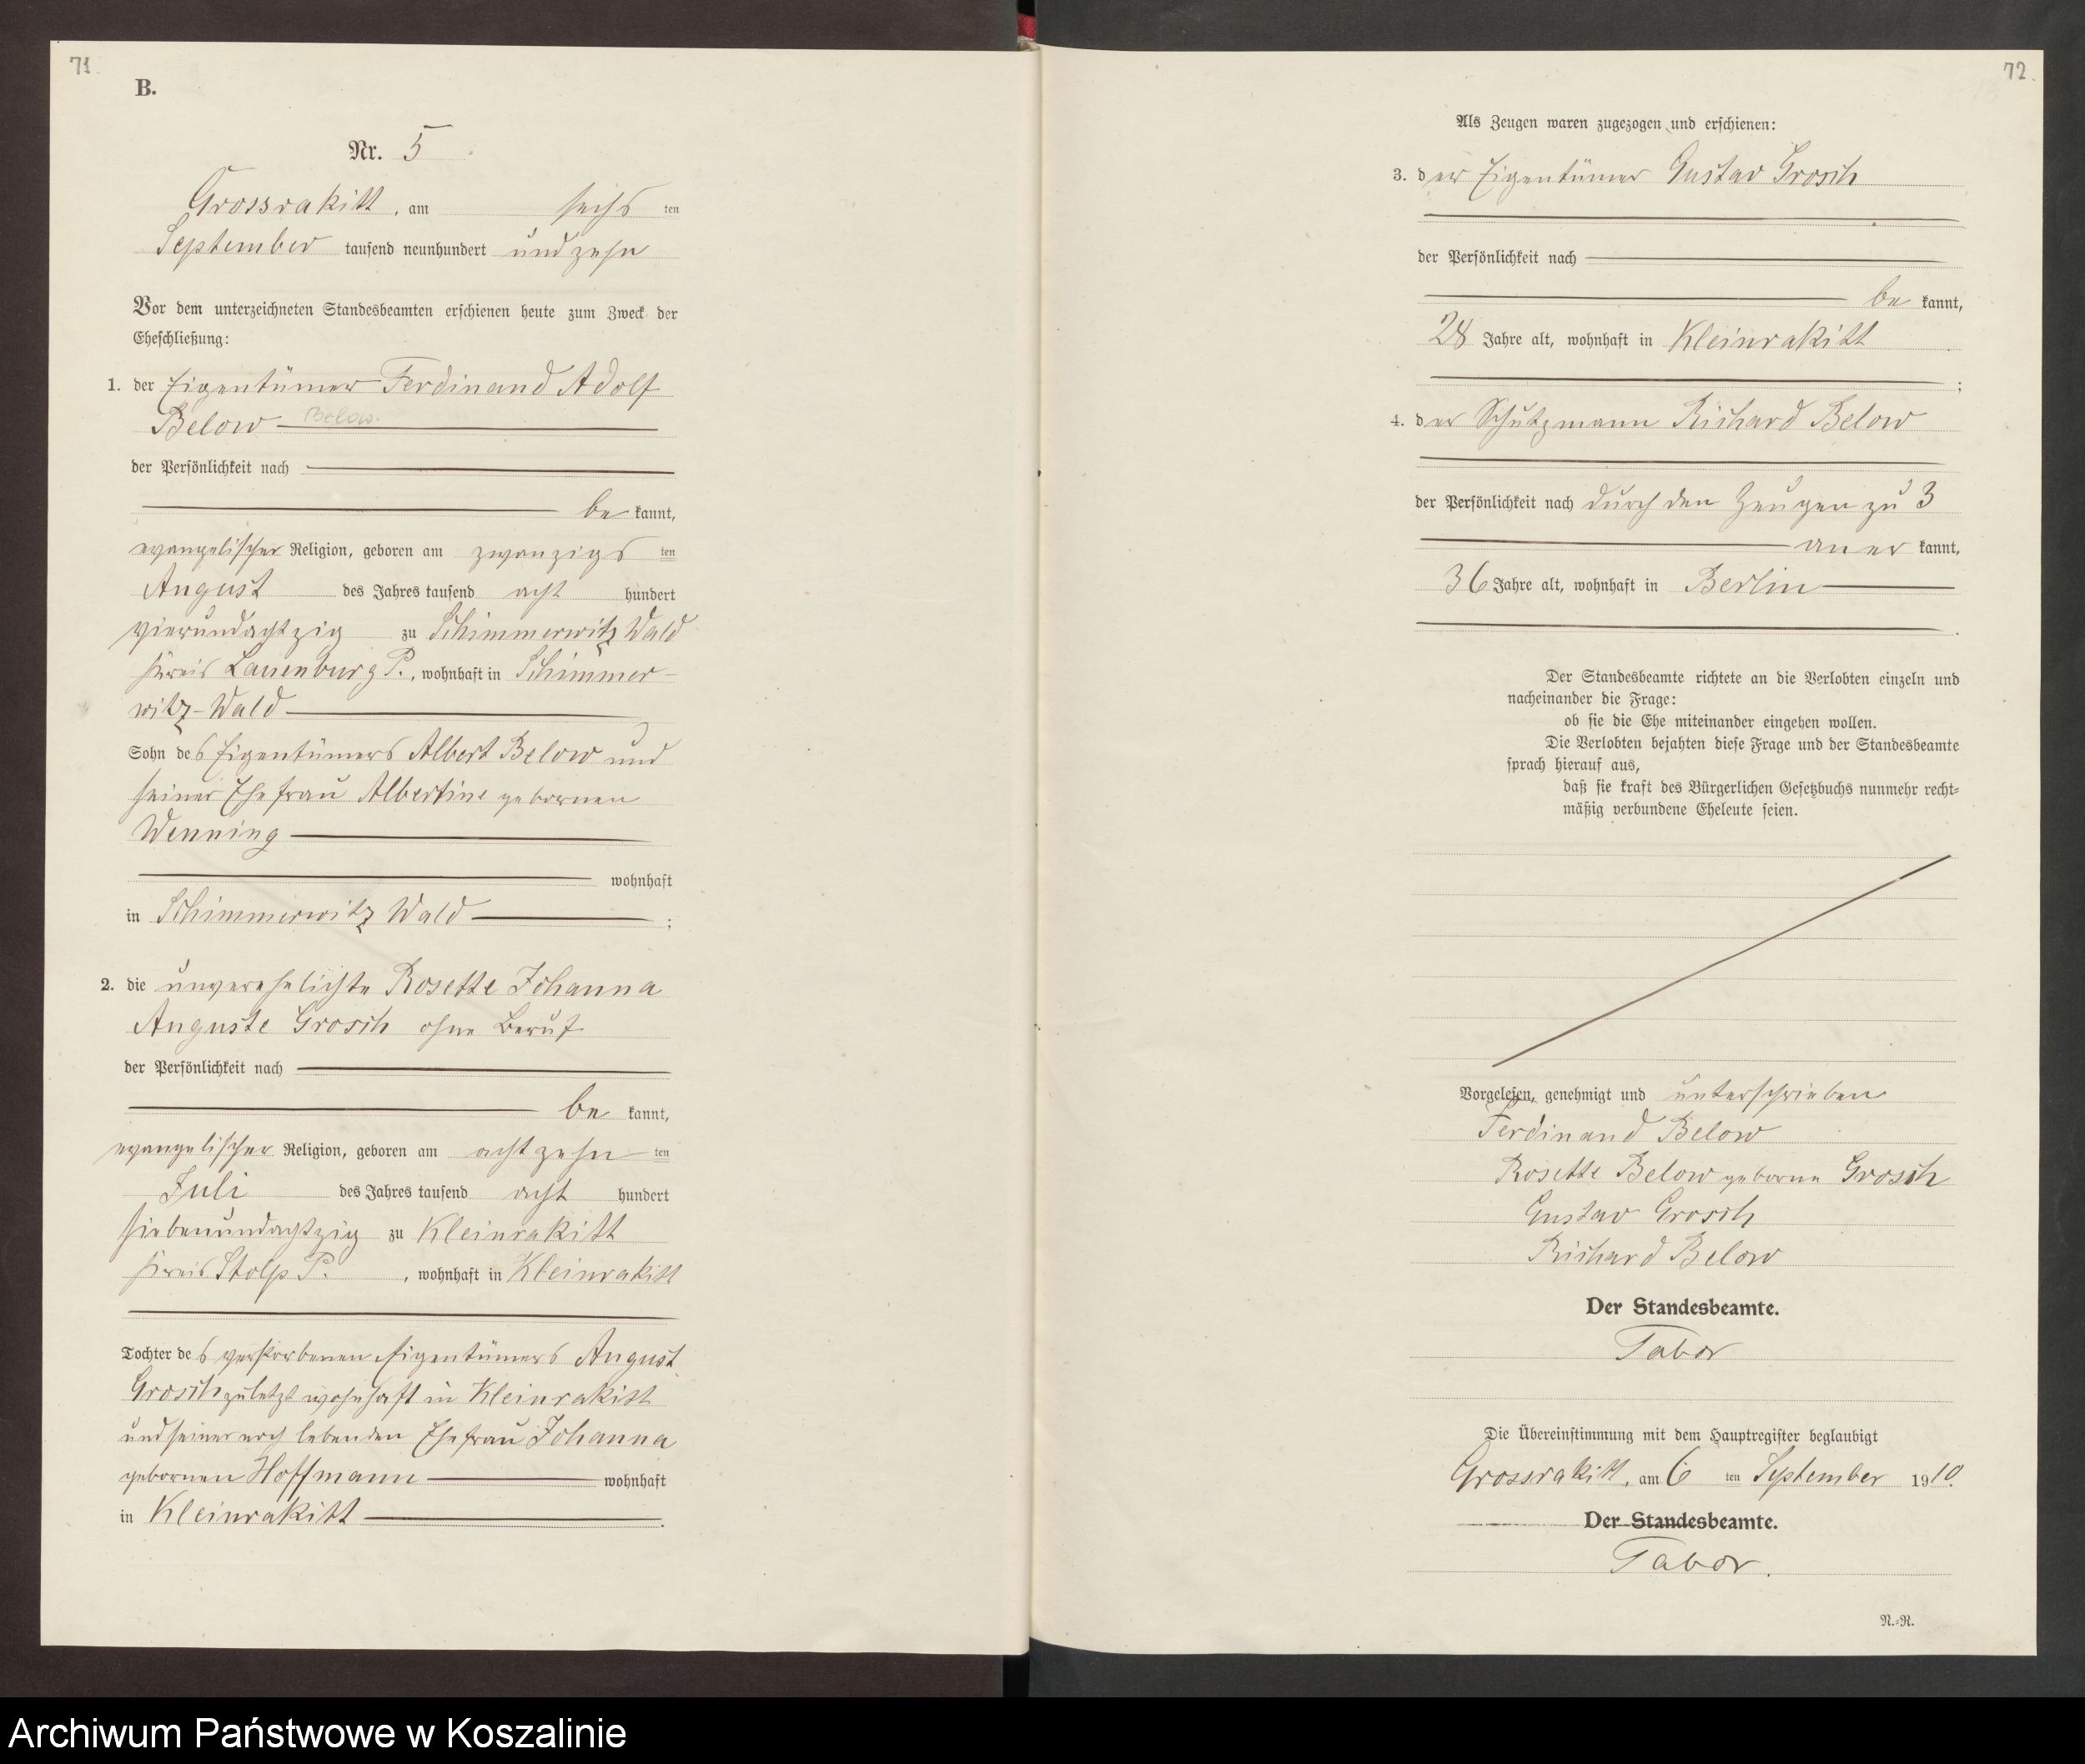 71
B.
Nr. 5
Grossrakitt, am sechsten
September tausend neunhundert und zehn
Vor dem unterzeichneten Standesbeamten erschienen heute zum Zweck der
Eheschließung:
1. der Eigentümer Ferdinand Adolf
Below Below.
der Persönlichkeit nach
be kannt,
evangelischer Religion, geboren am zwanzigsten
August des Jahres tausend acht hundert
vierundachtzig zu Schimmerwitz Wald
Kreis Lauenburg P., wohnhaft in Schimmer-
witz-Wald
Sohn des Eigentümers Albert Below und
seiner Ehefrau Albertine gebornen
Wenning
wohnhaft
in Schimmerwitz Wald ;
2. die unverehelichte Rosette Johanna
Auguste Grosch ohne Beruf
der Persönlichkeit nach
be kannt,
evangelischer Religion, geboren am achtzehnten
Juli des Jahres tausend acht hundert
siebenundachtzig zu Kleinrakitt
Kreis Stolp P. , wohnhaft in Kleinrakitt
Tochter des verstorbenen Eigentümers August
Grosch zuletzt wohnhaft in Kleinrakitt
und seiner noch lebenden Ehefrau Johanna
gebornen Hoffmann wohnhaft
in Kleinrakitt .
72.
Als Zeugen waren zugezogen und erschienen:
3. der Eigentümer Gustav Grosch
der Persönlichkeit nach
be kannt,
28 Jahre alt, wohnhaft in Kleinrakitt
;
4. der Schutzmann Richard Below
der Persönlichkeit nach durch den Zeugen zu 3
aner kannt,
36 Jahre alt, wohnhaft in Berlin
.
Der Standesbeamte richtete an die Verlobten einzeln und
nacheinander die Frage:
ob sie die Ehe miteinander eingehen wollen.
Die Verlobten bejahten diese Frage und der Standesbeamte
sprach hierauf aus,
daß sie kraft des Bürgerlichen Gesetzbuchs nunmehr recht-
mäßig verbundene Eheleute seien.
Vorgelesen, genehmigt und unterschrieben
Ferdinand Below
Rosette Below geborne Grosch
Gustav Grosch
Richard Below
Der Standesbeamte.
Tabor
Die Übereinstimmung mit dem Hauptregister beglaubigt
Grossrakitt, am 6 ten September 1910.
Der Standesbeamte.
Tabor.
N.-R.
Archiwum Państwowe w Koszalinie